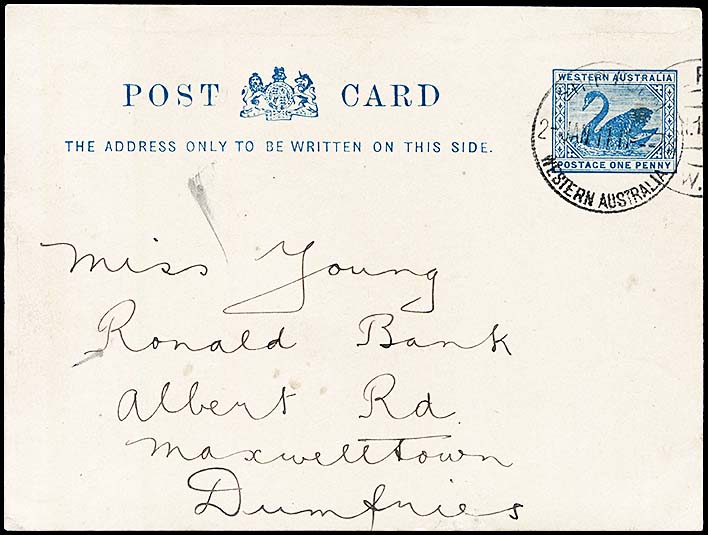 WESTERN AUSTRALIA
POST CARD
THE ADDRESS ONLY TO BE WRITTEN ON THIS SIDE.
POSTAGE ONE PENNY
WESTERN AUSTRALIA
W.
Miss Young
Ronald Bank
Albert Rd
Maxwelltown
Dumfries